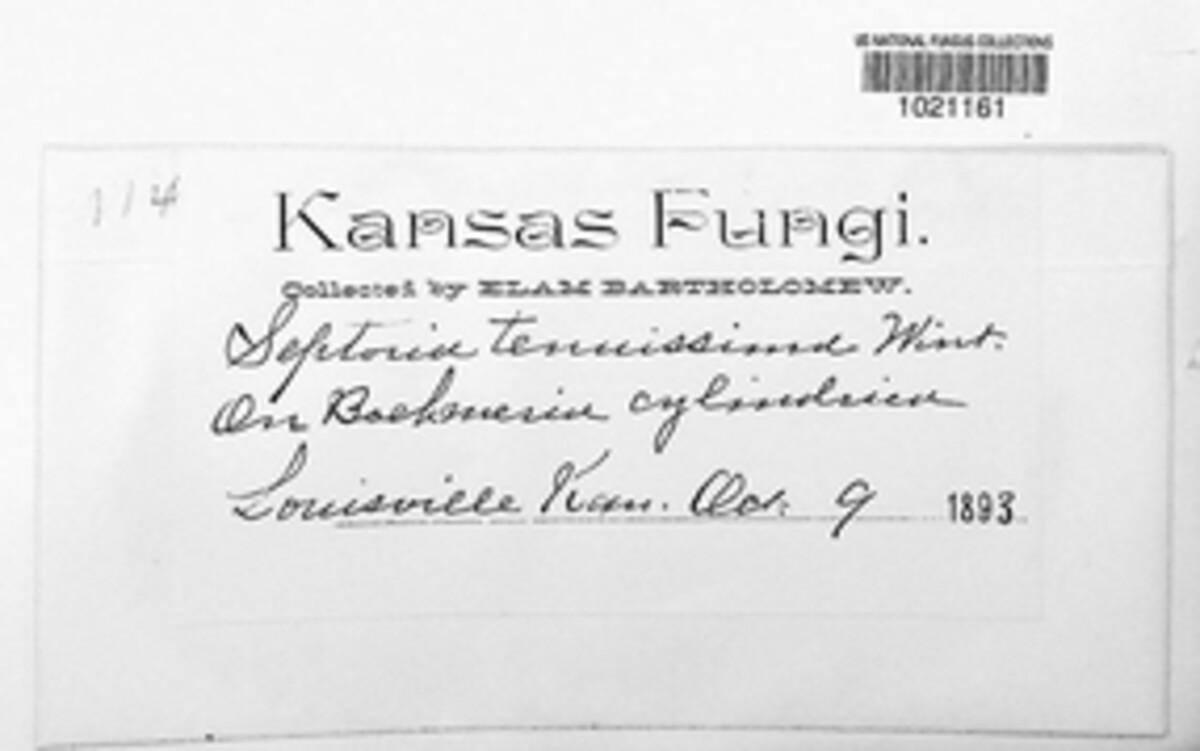 US NATIONAL FUNGUS COLLECTIONS
1021161
114
Kansas Fungi.
Collected by ELAM BARTHOLOMEW.
Septoria tenuissima Wint.
On Boehmeria cylindrica
Louisville Kan. Oct. 9 1893